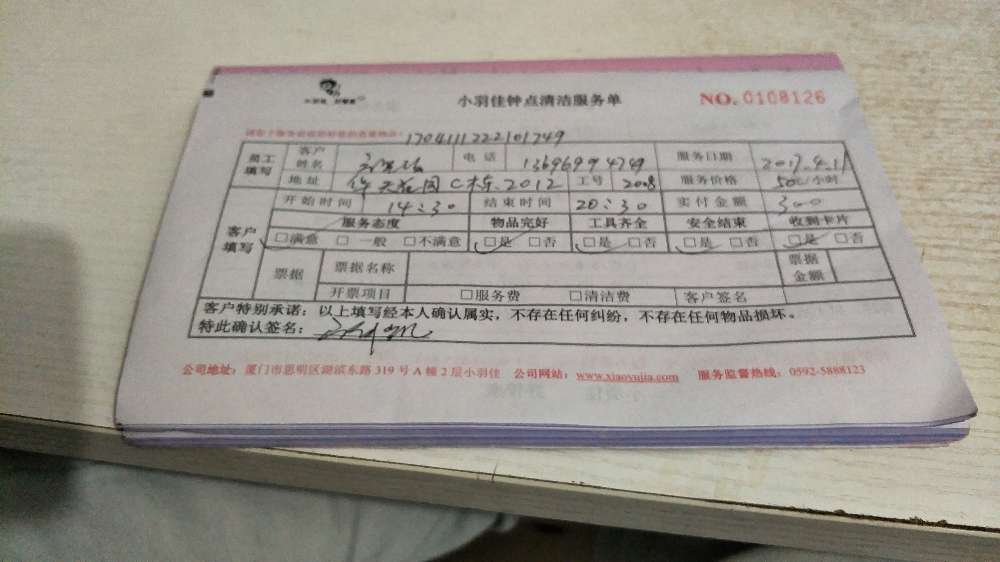 小羽佳 好管家
小羽佳钟点清洁服务单
NO. 0108126
170411122210 1749
员工填写 客户姓名 电话 13696994749 服务日期 2017.4.11
地址 花园C栋.2012 工号 2008 服务价格 50元/小时
客户填写 开始时间 14:30 结束时间 20:30 实付金额 300
服务态度 物品完好 工具齐全 安全结束 收到卡片
□满意 □一般 □不满意 □是 □否 □是 □否 □是 □否 □是 □否
票据 票据名称 票据金额
开票项目 □服务费 □清洁费 客户签名
客户特别承诺:以上填写经本人确认属实,不存在任何纠纷,不存在任何物品损坏。
特此确认签名:
公司地址:厦门市思明区湖滨东路 319 号 A 幢 2 层小羽佳 公司网站:www.xiaoyujia.com 服务监督热线:0592-5888123